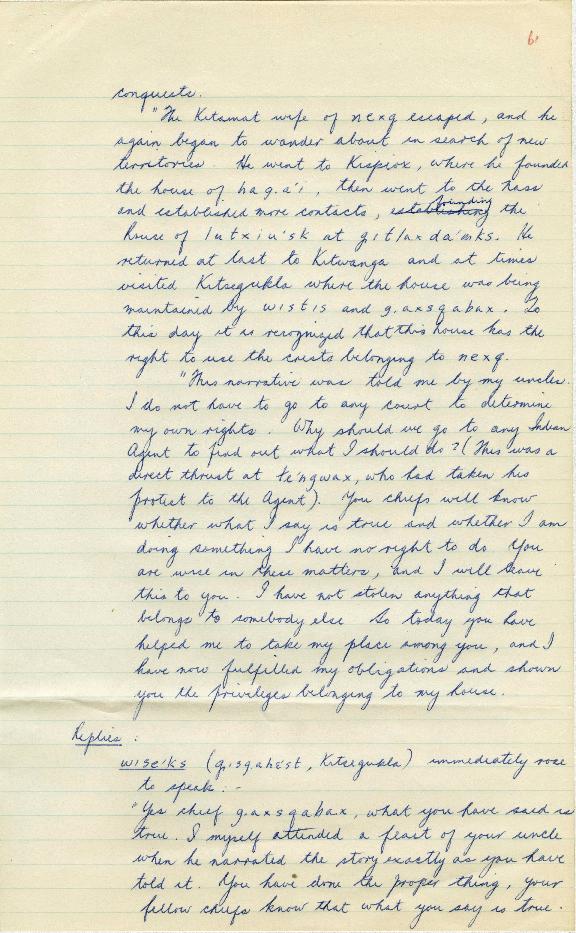 6.
conquests.
"The Kitamat wife of nexq escaped, and he
again began to wander about in search of new
territories. He went to Kispiox, where he founded
the house of hag.a'i, then went to the Nass
and established more contacts, ~~establishing~~ founding the
house of lutxiu'sk at gitlaxda'mks. He
returned at last to Kitwanga and at times
visited Kitsegukla where the house was being
maintained by wistis and g.axsgabax. To
this day it is recognized that this house has the
right to use the crests belonging to nexq.
"This narrative was told me by my uncles.
I do not have to go to any court to determine
my own rights. Why should we go to any Indian
Agent to find out what I should do? (This was a
direct thrust at te'ngwax, who had taken his
protest to the Agent). You chiefs will know
whether what I say is true and whether I am
doing something I have no right to do. You
are wise in these matters, and I will leave
this to you. I have not stolen anything that
belongs to somebody else So today you have
helped me to take my place among you, and I
have now fulfilled my obligations and shown
you the privileges belonging to my house.
Replies:
wise'ks (gisgahest, Kitsegukla) immediately rose
to speak: -
"Yes chief g.axsgabax, what you have said is
true. I myself attended a feast of your uncle
when he narrated the story exactly as you have
told it. You have done the proper thing, your
fellow chiefs know that what you say is true.